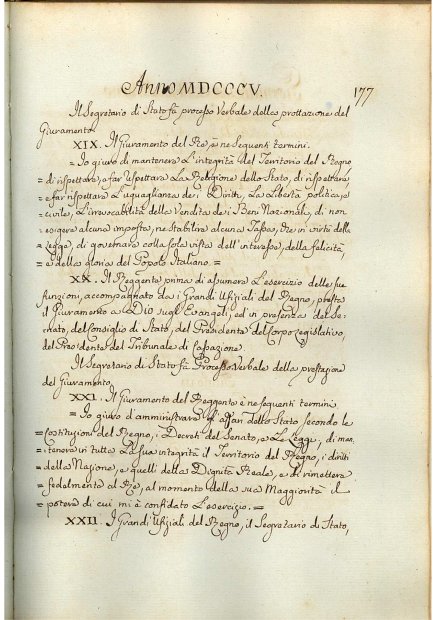 Anno MDCCCV.
177
Il Segretario di Stato fà processo Verbale della prestazione del
Giuramento.
XIX. Il Giuramento del Rè, è ne' Sequenti termini.
= Io giuro di mantenere L'integrità del Territorio del Regno
= di rispettare, e far rispettare La Religione dello Stato, di rispettare,
= e far rispettare L'uguaglianza de i Diritti, La Libertà politica, e
= civile, L'irrevocabilità delle Vendite de i Beni Nazionali, di non
= esigere alcuna imposta, nè Stabilire alcuna Tassa, che in virtù della
= Legge, di governare colla sola vista dell'interesse, della felicità,
= e della gloria del Popolo Italiano. =
XX. Il Reggente prima di assumere L'esercizio delle sue
funzioni, accompagnato da i Grandi Ufiziali del Regno, presta
il Giuramento a Dio sugl'Evangeli, ed in presenza del Se-
nato, del Consiglio di Stato, del Presidente del Corpo Legislativo,
del Presidente del Tribunale di Cassazione.
Il Segretario di Stato fà Processo Verbale della prestazione
del Giuramento.
XXI. Il Giuramento del Reggente è ne sequenti termini
= Io giuro d'amministrare gl'affari dello Stato secondo le
= Costituzioni del Regno, i Decreti del Senato, e Le Leggi, di man-
= tenere in tutta La sua integrità il Territorio del Regno, i diritti
= della Nazione, e quelli della Dignità Reale, e di rimettere
= fedelmente al Rè, al momento della sua Maggiorità il
= potere di cui mi è confidato L'esercizio. =
XXII. I Grandi Ufiziali del Regno, il Segretario di Stato,